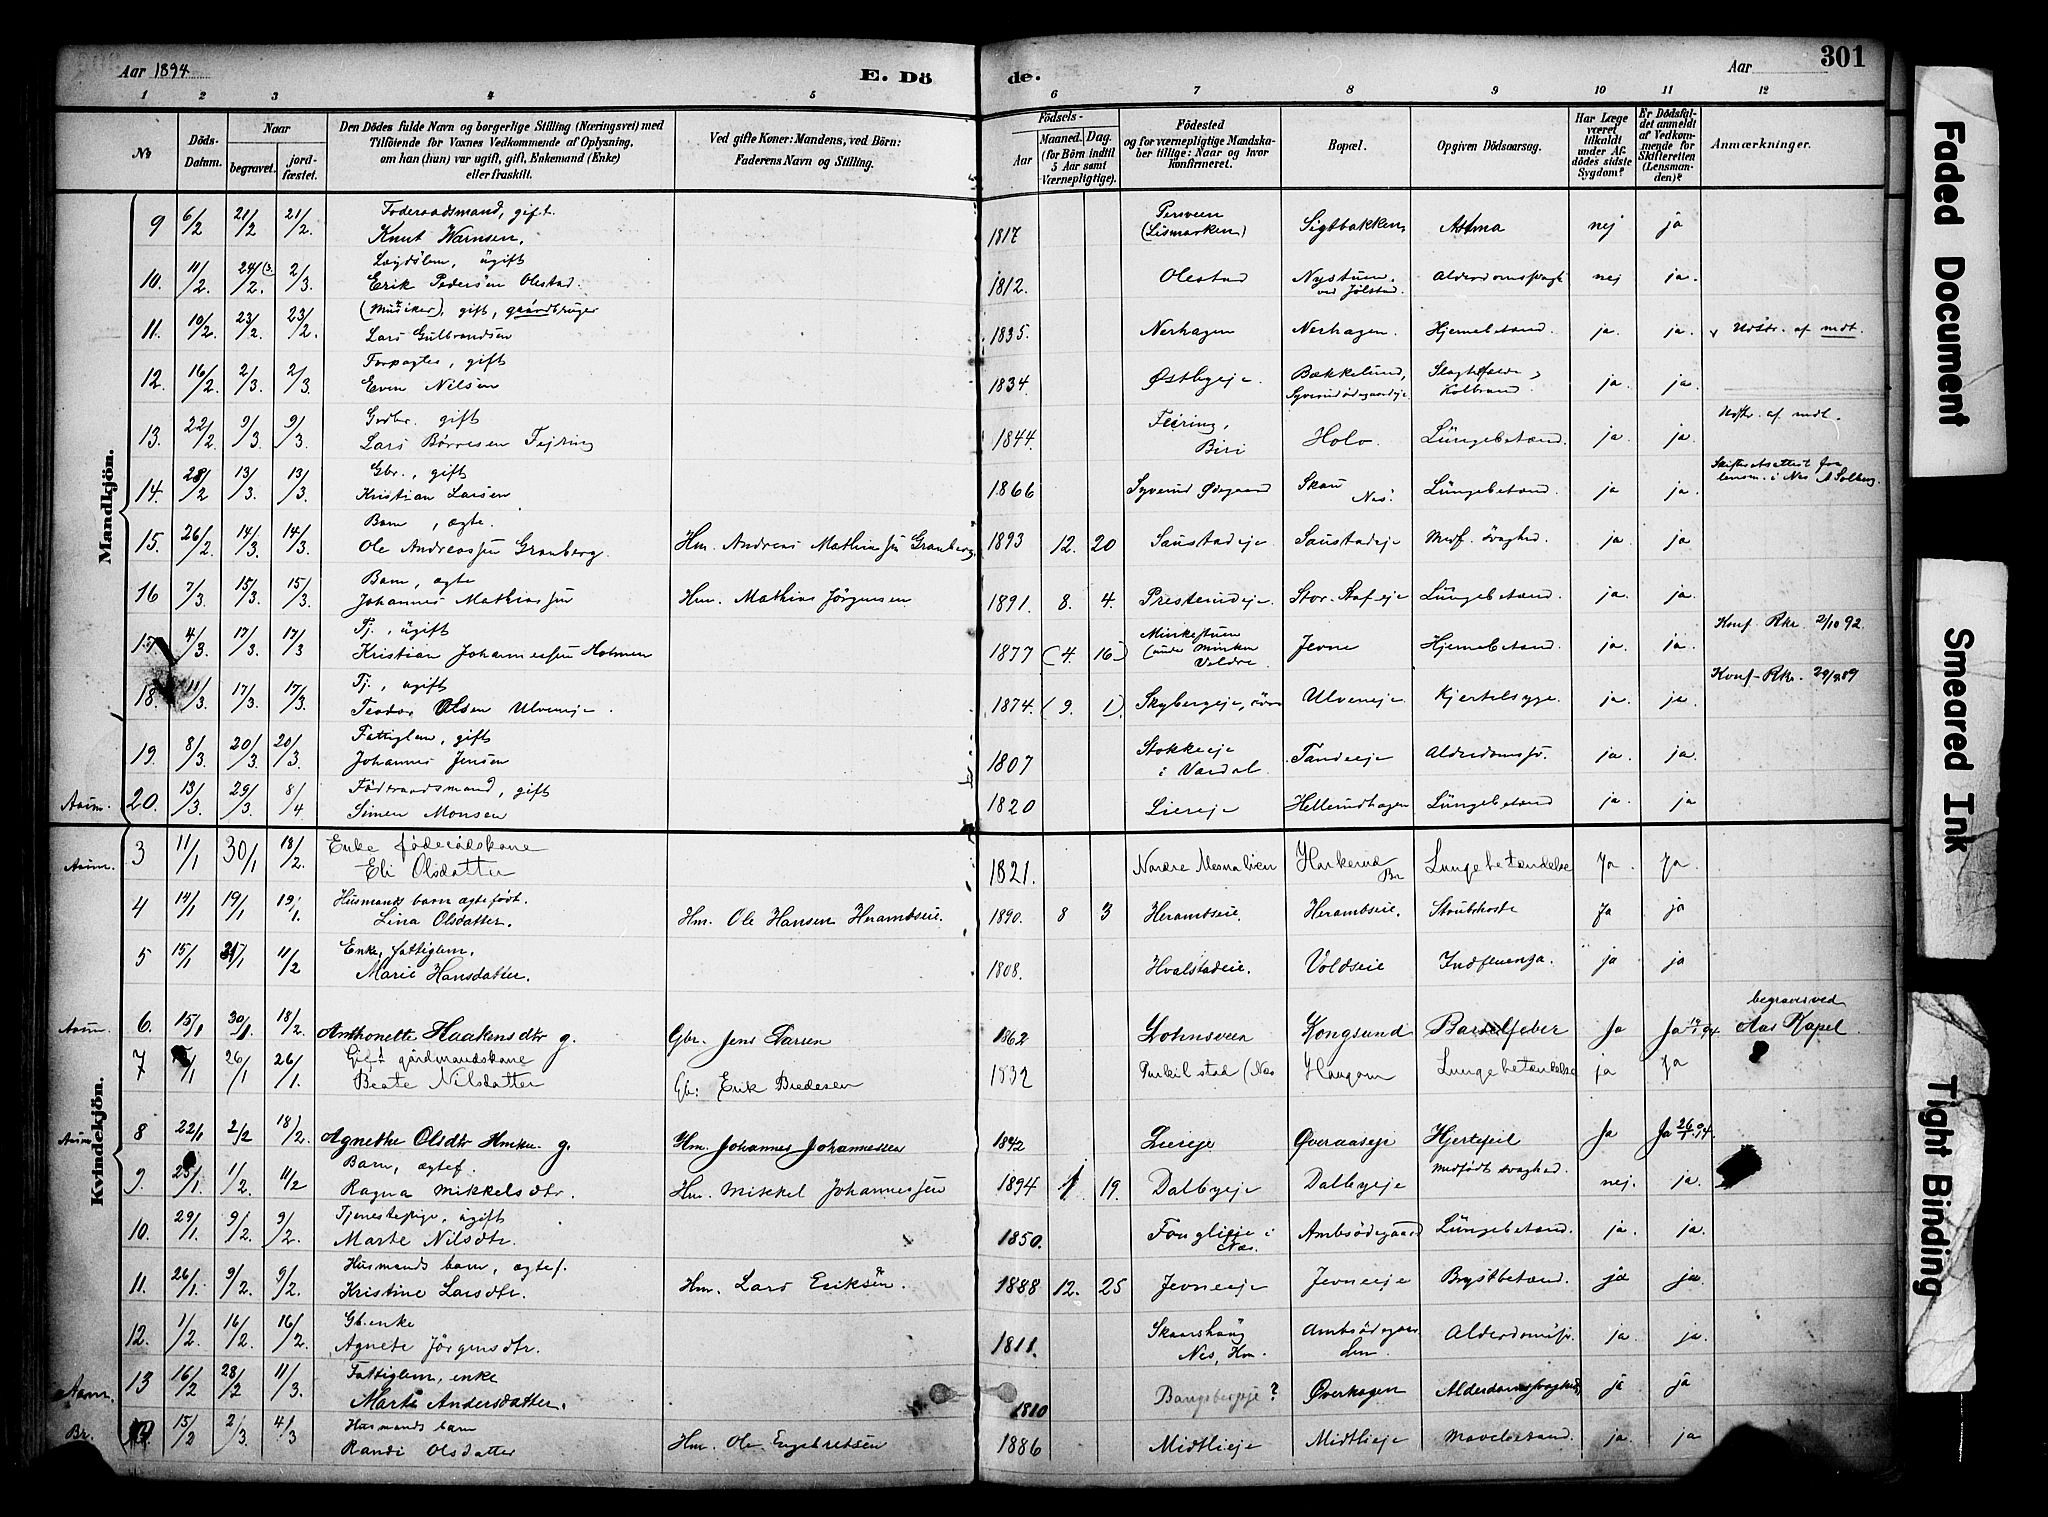 Aar 1894 E. Dö de. Aar 301
1 2 3 4 5 6 7 8 9 10 11 12
No Döds-Datum. Naar begravet. jord-fæstet. Den Dödes fulde Navn og borgerlige Stilling (Næringsvei) med Tilföiende for Voxnes Vedkommende af Oplysning, om han (hun) var ugift, gift, Enkemand (Enke) eller fraskilt. Ved gifte Koner: Mandens, ved Börn: Faderens Navn og Stilling. Födsels- Aar Maaned. Dag. (for Börn indtil 5 Aar samt Værnepligtige). Födested og for værnepligtige Mandskaber tillige: Naar og hvor konfirmeret. Bopæl. Opgiven Dödsaarsag. Har Læge været tilkaldt under Afdödes sidste Sygdom? Er Dödsfaldet anmeldt af Vedkommende for Skifteretten (Lensmanden)? Anmærkninger.
Mandkjön.
9 6/2 21/2 21/2 Föderaadsmand, gift. Persveen
Knut Warnsen, 1817 (Lismarken) Sigtbakken Astma nej ja
10. 11/2 24/2 2/3 Lægdslem, ugift
Erik Pedersen Olestad. 1812. Olestad Nystuen ved Jølstad. Alderdomssvagh nej ja.
11. 10/2 23/2 23/2 (Musiker), gift, gaardbruger
Lars Gulbrandsen 1835. Nerhagen Nerhagen. Hjernebetænd. ja. ja. Udstr. af mdt
12. 16/2 2/3 2/3 Forpagter, gift
Even Nilsen 1834 Østbyeje. Bækkelund, Slagtilfælde, Kolbrand. ja. ja.
13. 22/2 9/3 9/3 Gvdbr. gift
Lars Børresen Fejring 1844. Feiring, Biri Holo. Lüngebetænd. ja. ja. Udstr. af mdt.
14. 28/2 13/3 13/3 Gbr., gift
Kristian Larsen 1866 Syverud Ødegaard Skau Nes. Lüngebetænd. ja ja. Skifteattest fra lensm. i Nes A Solberg.
15. 26/2 14/3 14/3 Barn, ægte.
Ole Andreassen Granberg. Hm. Andreas Mathiassen Granberg. 1893 12. 20 Saustadeje. Saustadeje Medf. svaghed. ja ja.
16 7/3. 15/3. 15/3. Barn, ægte
Johannes Mathiassen Hm. Mathias Jørgensen 1891. 8. 4. Prestrudeje. Stor-Stafeje Lüngebetænd. ja. ja.
17 4/3. 17/3. 17/3 Tj., ugift Konf. Rkr. 2/10 92.
Kristian Johannessen Holmen 1877 (4. 16) Jevne Hjernebetænd. ja. ja.
18. 11/3 17/3. 17/3. Tj., ugift Konf. Rkr. 89
Teodor Olsen Ulveneje. 1874. (9. 1) Skybergeje, Ulveneje. Kjertelsyge. ja. ja.
19. 8/3. 20/3 20/3. Fattiglem, gift
Johannes Jensen 1807 Stokkeeje i Vardal. Tandeeje Alderdomssv. ja. ja.
Aaum. 20. 13/3 29/3 8/4 Föderaadsmand, gift
Simen Monsen 1820 Liereje Hellerudhagen Lüngebetænd ja. ja
Kvindekjön.
Aaum. 3 11/1 30/1 18/2. Enke føderådskone
Eli Olsdatter 1821. Nordre Mesnalien Harkerud Br Lungebetændelse Ja Ja.
4 14/1 19/1 19/1. Husmands barn ægtefødt.
Lina Olsdatter. Hm. Ole Hansen Herambseie. 1890. 8 3 Herambseie. Herambseie. Strubehoste Ja ja
5 15/1 11/2 Enke, fattiglem,
Marie Hansdatter. 1808. Hvalstadeie. Voldseie Indfluensa. ja ja
Aaum. 6. 15/1 30/1. 18/2. Anthonette Haakensdtr g. Gbr. Jens Larsen 1862 Lohnsveen Kongsrud Barselfeber Ja Ja begraves ved Aas Kapel.
7 26/1 26/1. Gift gårdmandskone
Beate Nilsdatter Gbr: Erik Bredesen 1832 (Nes Haugom Lungebetændelse ja Ja
Aaum. 8 22/1 2/2 18/2. Agnethe Olsdtr Hmkn g. Hm. Johannes Johannessen 1842 Liereje Øveraaseje Hjertefeil Ja Ja 26/1 94.
9. 25/1. 1/2. 11/2 Barn, ægtef. Medfødt svaghed.
Ragna Mikkelsdtr. Hm. Mikkel Johannessen 1894 1 19. Dalbyeje. Dalbyeje nej. ja.
10. 29/1. 9/2. 9/2. Tjenestepige, ugift
Marte Nilsdtr. 1850. Fonglieje i Næs. Ambsødegaard Lüngebetænd. ja. ja.
11. 26/1. 9/2. 9/2. Husmands barn, ægtef.
Kristine Larsdtr. Hm. Lars Eriksen. 1888 12. 25 Jevneeje. Jevneeje Brystbetænd. ja ja.
12. 1/2. 16/2. 16/2. Gb.enke
Agnete Jörgensdtr. 1811. Skaarshaug Nes, Hm. Alderdomssv. ja. ja.
Aaum. 13 16/2 28/2 11/3. Fattiglem, enke
Marte Andersdatter. 1810 Bangsbergeje? Øverhagen Alderdomssvaghed ja ja
Br. 14. 15/2 2/3. 4/3 Husmands barn
Randi Olsdatter Hm. Ole Engebretsen 1886 Midtlieje Midtlieje Mavebetænd. ja. ja
Faded Document
Smeared Ink
Tight Binding